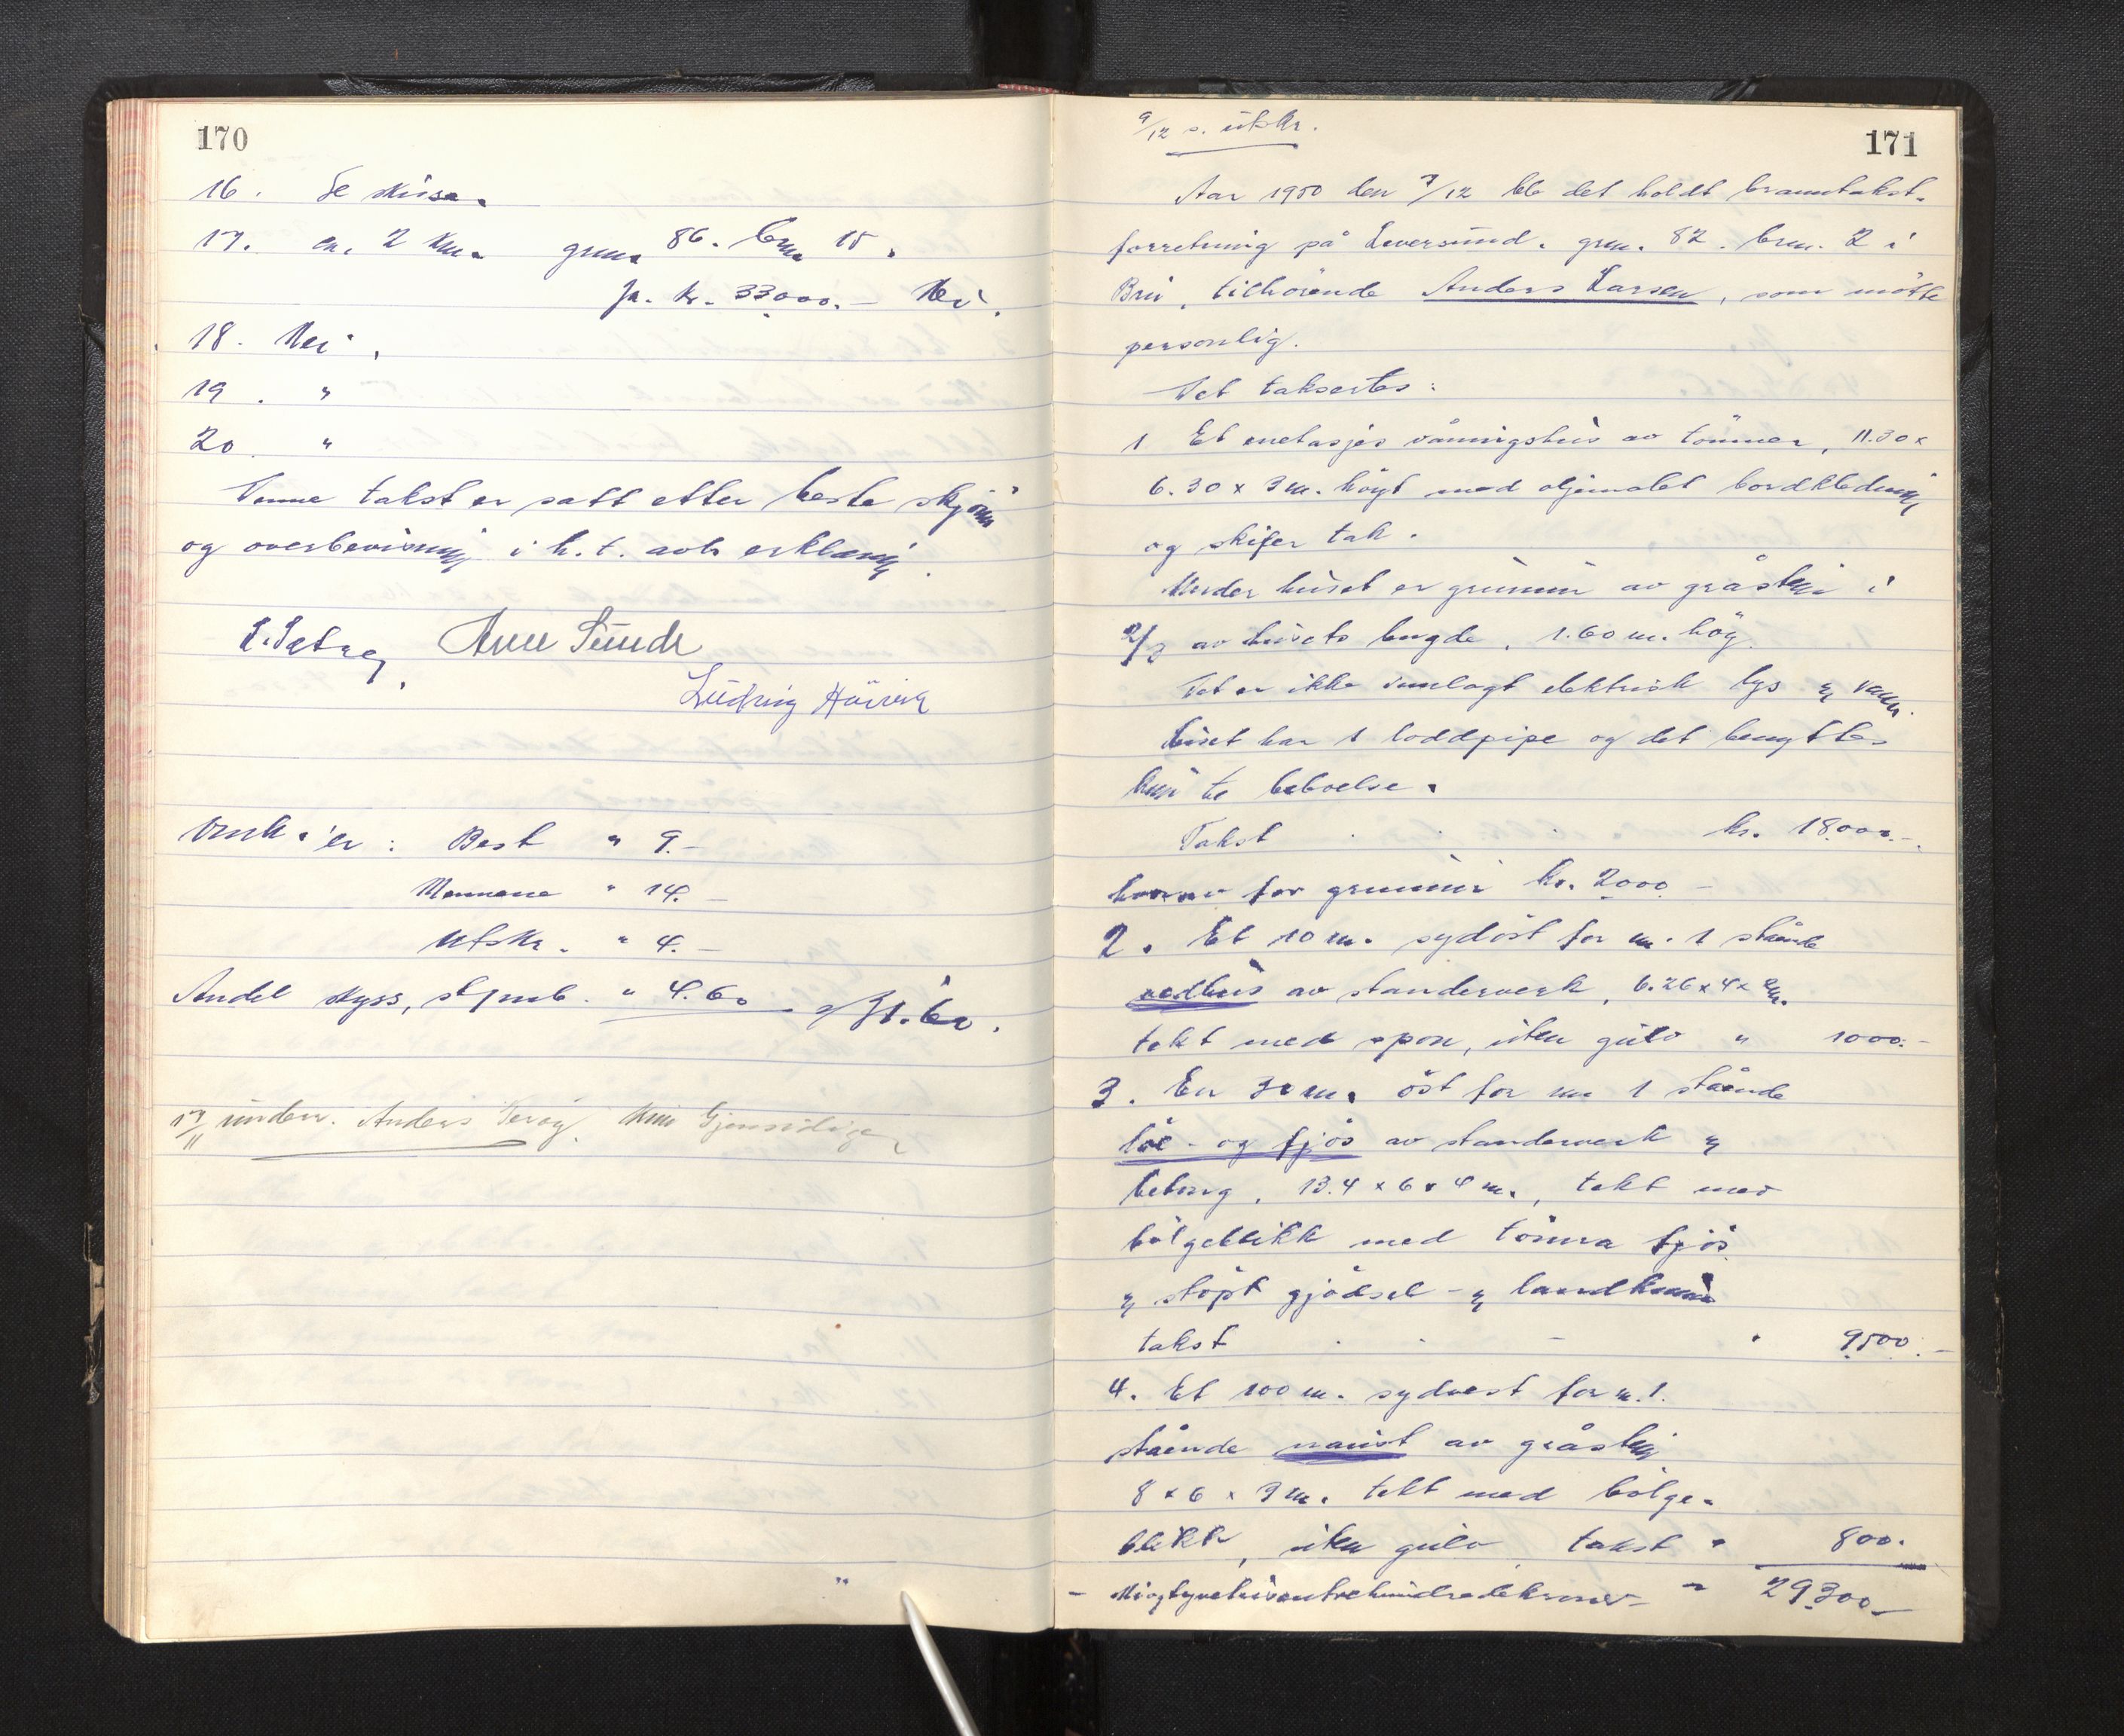 170
16. Se skisse.
17. ca. 2 km. grm. 86. brm. 15.
Ja. kr. 33000.- Nei.
18. Nei.
19. "
20. "
Denne takst er satt etter beste skjønn
og overbevisning i h. t. avla erklæring.
Arne Sunde
Ludvig
Omk.'er: Best " 9.-
Mennene " 14.-
Utskr. " 4.-
Andel skyss, stpmb. " 4.60 31.60.
17/11 underr. Anders Gjensidige
9/12 s. utskr.
171
Aar 1950 den 7/12 ble det holdt branntakst-
forretning på Leversund. grn. 82. brn. 2 i
Bru, tilhørende Anders Larsen, som møtte
personlig.
Det taksertes:
1 Et enetasjes våningshus av tömmer, 11.30 x
6.30 x 3 m. höyt med oljemalet bordkledning
og skifer tak.
Under huset er grunnmur av gråstein i
2/3 av husets lengde, 1.60 m. höy.
Det er ikke innlagt elektrisk lys og vann.
Huset har 1 loddpipe og det benyttes
kun te beboelse.
Takst kr. 18000.-
hvorav for grunnmur kr. 2000 -
2. Et 10 m. sydöst for nr. 1 stående
vedhus av standerverk, 6.26 x 4 x 2 m.
tekt med spon, uten gulv " 1000.-
3. En 30 m. öst for nr 1 stående
löe- og fjös av standerverk og
betong, 13.4 x 6 x 4 m., tekt med
bölgeblikk med tömra fjös
og stöpt gjödsel- og landkum
takst " 9500.-
4. Et 100 m. sydvest for nr. 1.
stående naust av gråstein
8 x 6 x 3 m. tekt med bölge-
blikk, uten gulv takst " 800.
- Niogtyvetusentrehundredekroner - " 29300-